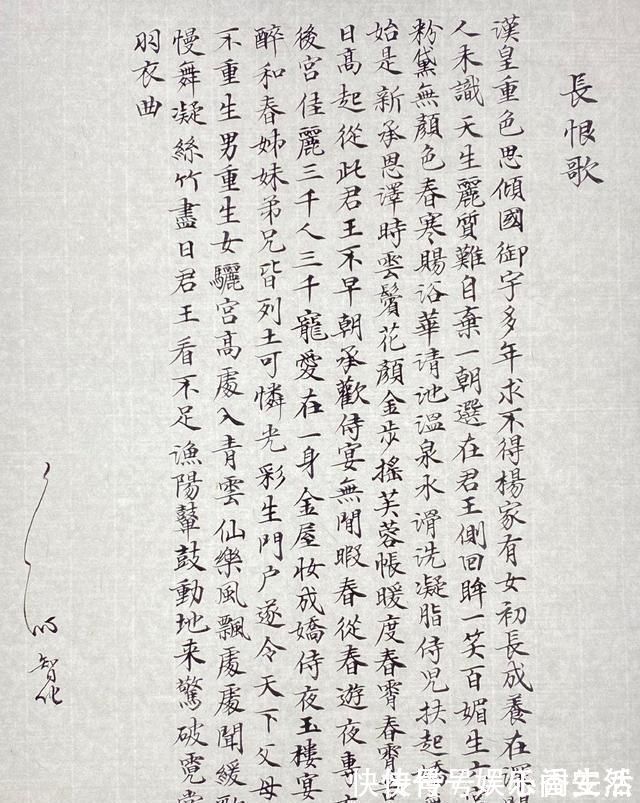 長恨歌
漢皇重色思傾國御宇多年求不得楊家有女初長成養在深
人未識天生麗質難自棄一朝選在君王側回眸一笑百媚生六
粉黛無顏色春寒賜浴華清池溫泉水滑洗凝脂侍児扶起嬌
始是新承恩澤時雲鬢花顏金步搖芙蓉帳暖度春宵春宵
日高起從此君王不早朝承歡侍宴無閒暇春從春遊夜專
後宮佳麗三千人三千寵愛在一身金屋妝成嬌侍夜玉樓宴
醉和春姊妹弟兄皆列土可憐光彩生門户遂令天下父母
不重生男重生女驪宮高處入青雲仙樂風飄處處聞緩歌
慢舞凝絲竹盡日君王看不足漁陽鼙鼓動地来驚破霓裳
羽衣曲